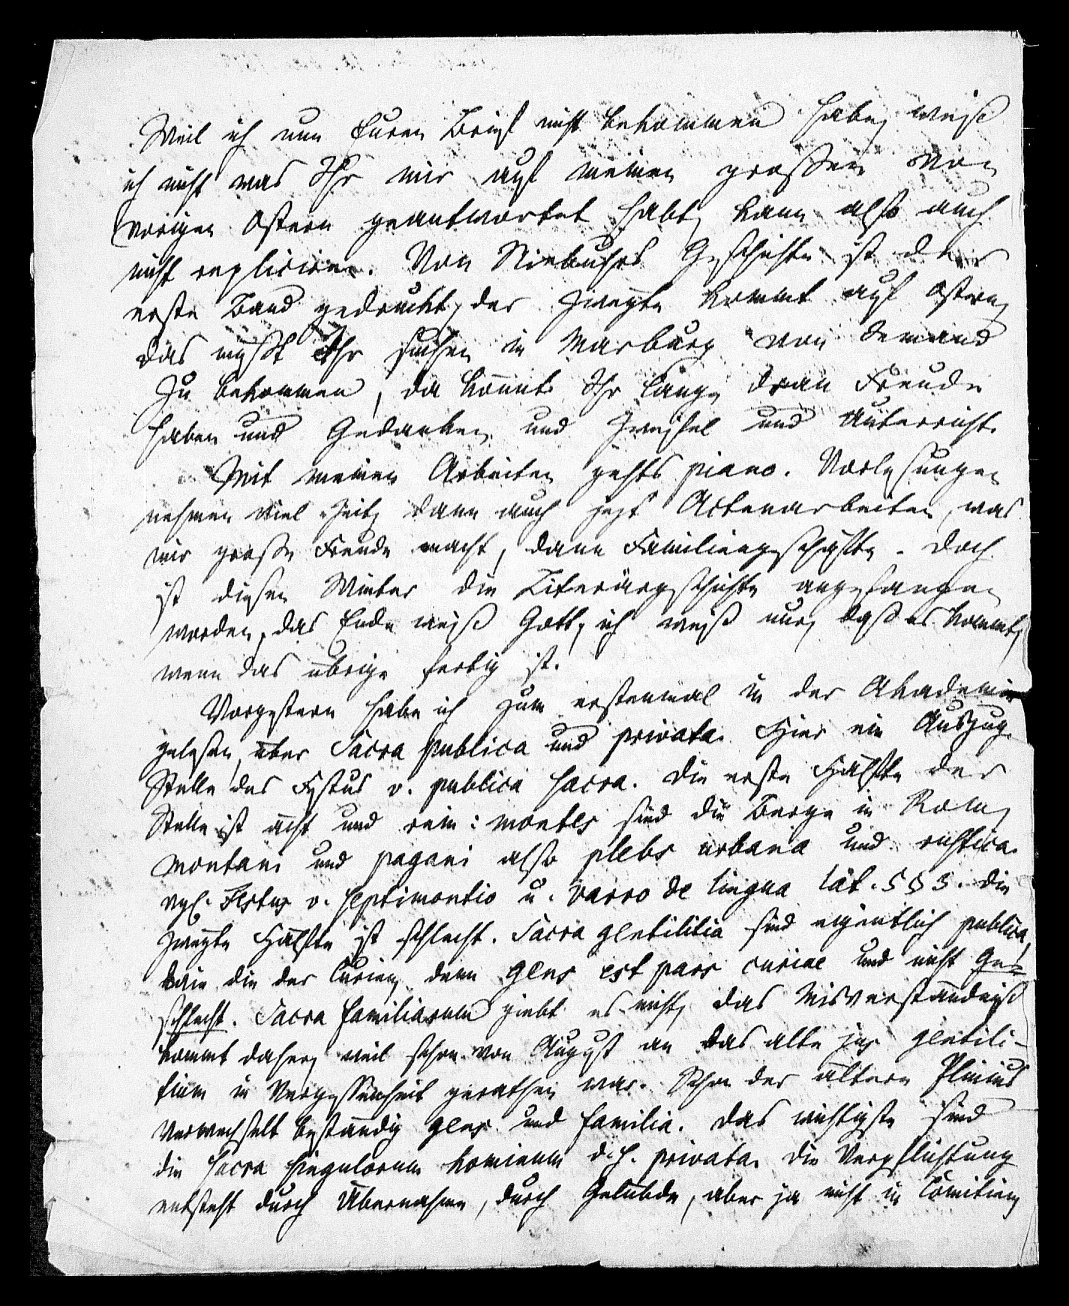 Weil ich nun Euren Brief nicht bekommen habe, weiß
ich nicht was Ihr mir auf meinen großen von
vorigen Ostern geantwortet habt, kann also auch
nicht repliciren. Von Niebuhrs Geschichte ist der
erste Band gedruckt, der zweyte kommt auf Ostern,
das müßt Ihr suchen in Marburg von Jemand
zu bekommen, da könnt Ihr lange dran Freude
haben und Gedanken und Zweifel und Unterricht.
Mit meinen Arbeiten gehts piano. Vorlesungen
nehmen viel Zeit, dann auch jezt Actenarbeiten, was
mir große Freude macht, dann Familiengeschäfte. Doch
ist diesen Winter die Literärgeschichte angefangen
worden, das Ende weiß Gott, ich weiß nur, daß es kommt,
wenn das übrige fertig ist.
Vorgestern habe ich zum erstenmal in der Akademie
gelesen, über Sacra publica und privata. Hier ein Auszug.
Stelle des Festus v. publica sacra. Die erste Hälfte der
Stelle ist ächt und rein: montes sind die Berge in Rom,
montani und pagani also plebs urbana und rustica.
vgl. Festus v. septimontio u. Varro de lingua lat. 5 § 3. Die
zweyte Hälfte ist schlecht. Sacra gentilitia sind eigentlich publica,
wie die der Curien, denn gens est pars curiae und nicht Ge=
schlecht. Sacra familiarum giebt es nicht, das Misverständniß
kommt daher, weil schon von August an das alte jus gentili-
tium in Vergessenheit gerathen war. Schon der ältere Plinius
verwechselt beständig gens und familia. Das wichtigste sind
die sacra singulorum hominum d. h. privata. Die Verpflichtung
entsteht durch Übernahme, durch Gelübde, aber ja nicht in Comitien,